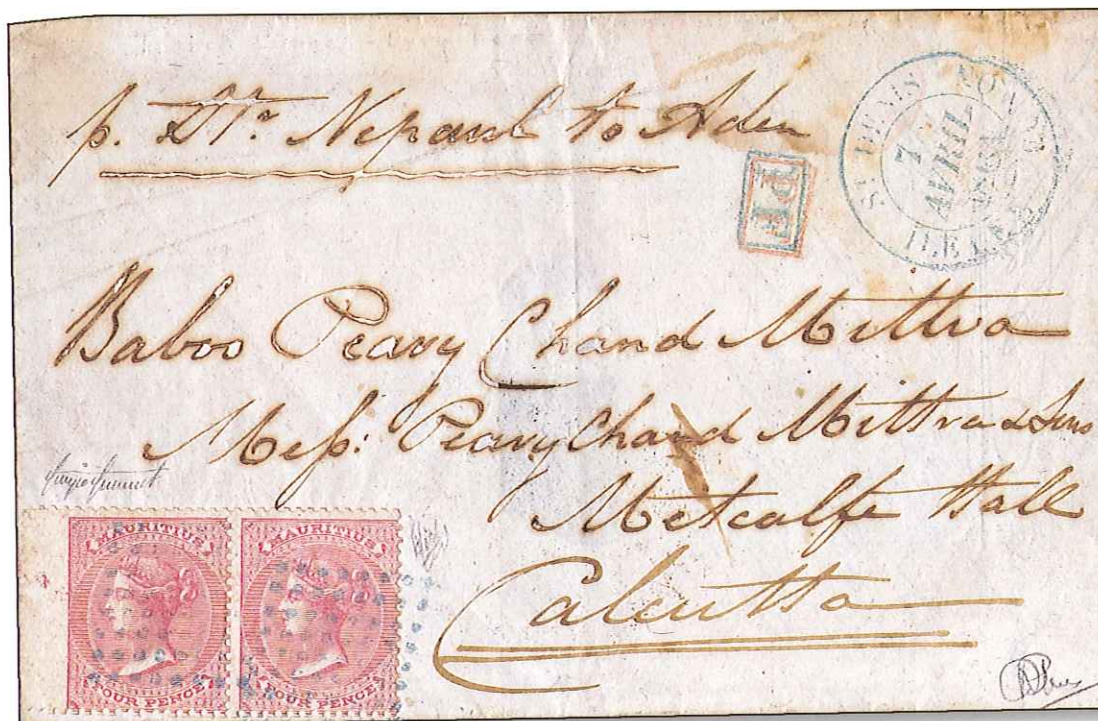 p. Str. Nepaul to Aden
ST DENIS
7
AVRIL
PF
Baboo Peary Chand Mittra
Mess: Peary Chand Mittra & Sons
Metcalfe Hall
Calcutta
MAURITIUS
FOUR PENCE
MAURITIUS
FOUR PENCE